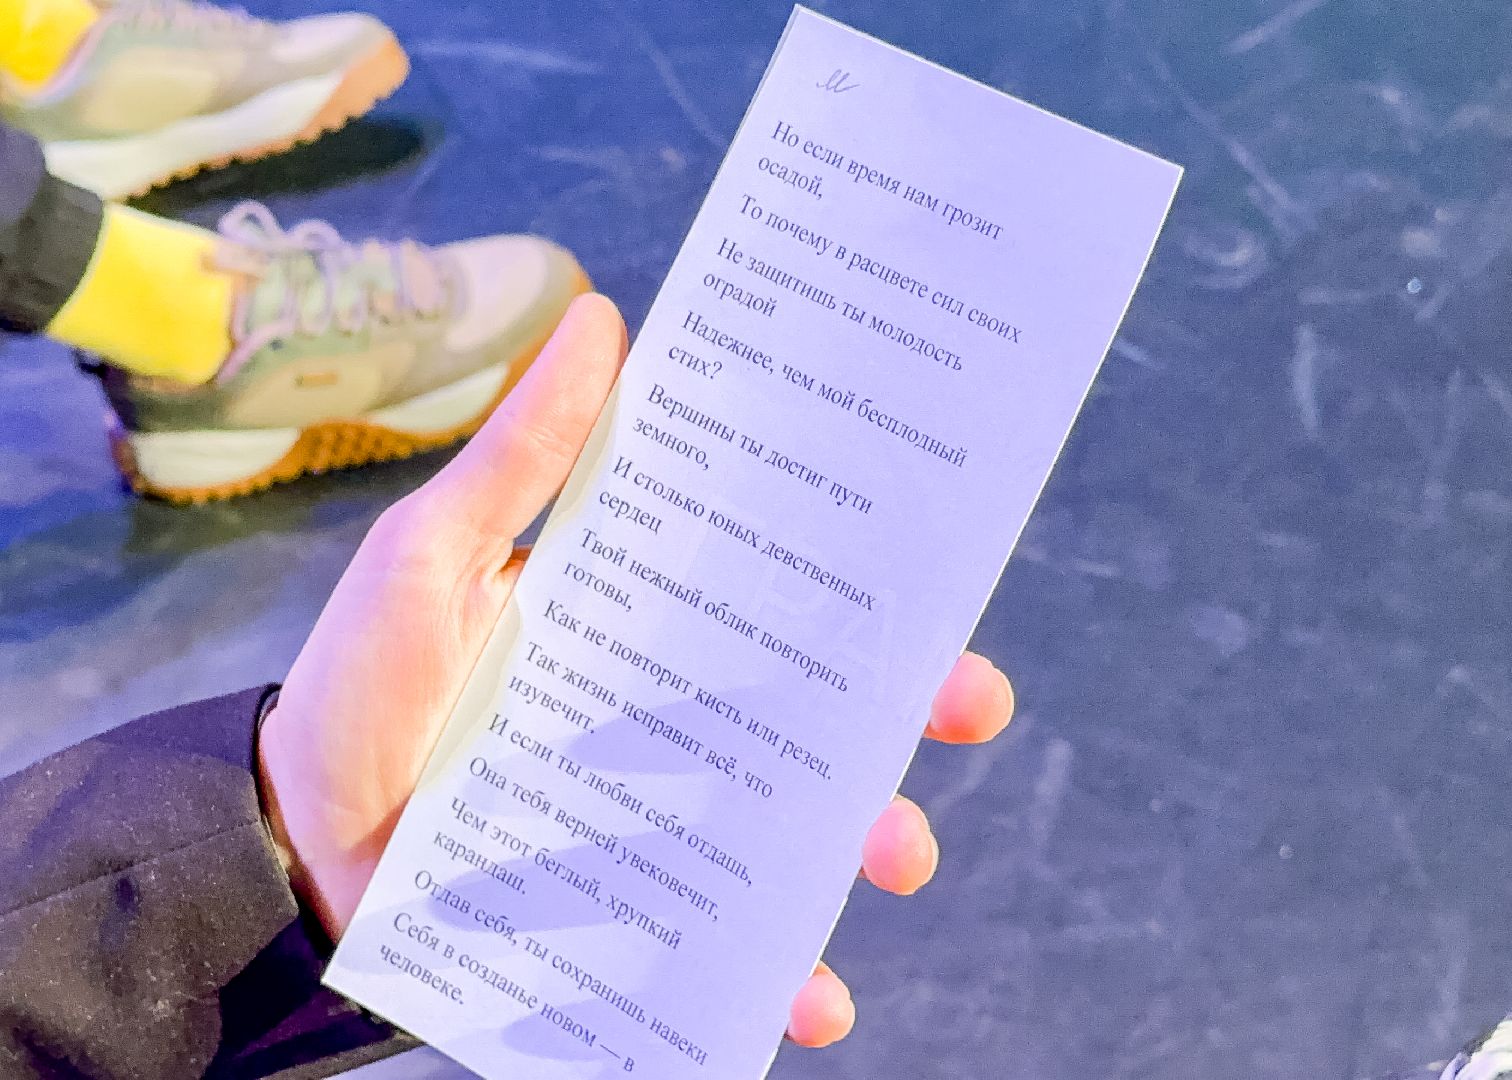 Но если время нам грозит
осадой,
То почему в расцвете сил своих
Не защитишь ты молодость
оградой
Надежнее, чем мой бесплодный
стих?
Вершины ты достиг пути
земного,
И столько юных девственных
сердец
Твой нежный облик повторить
готовы,
Как не повторит кисть или резец.
Так жизнь исправит всё, что
изувечит.
И если ты любви себя отдашь,
Она тебя верней увековечит,
Чем этот беглый, хрупкий
карандаш.
Отдав себя, ты сохранишь навеки
Себя в созданье новом — в
человеке.